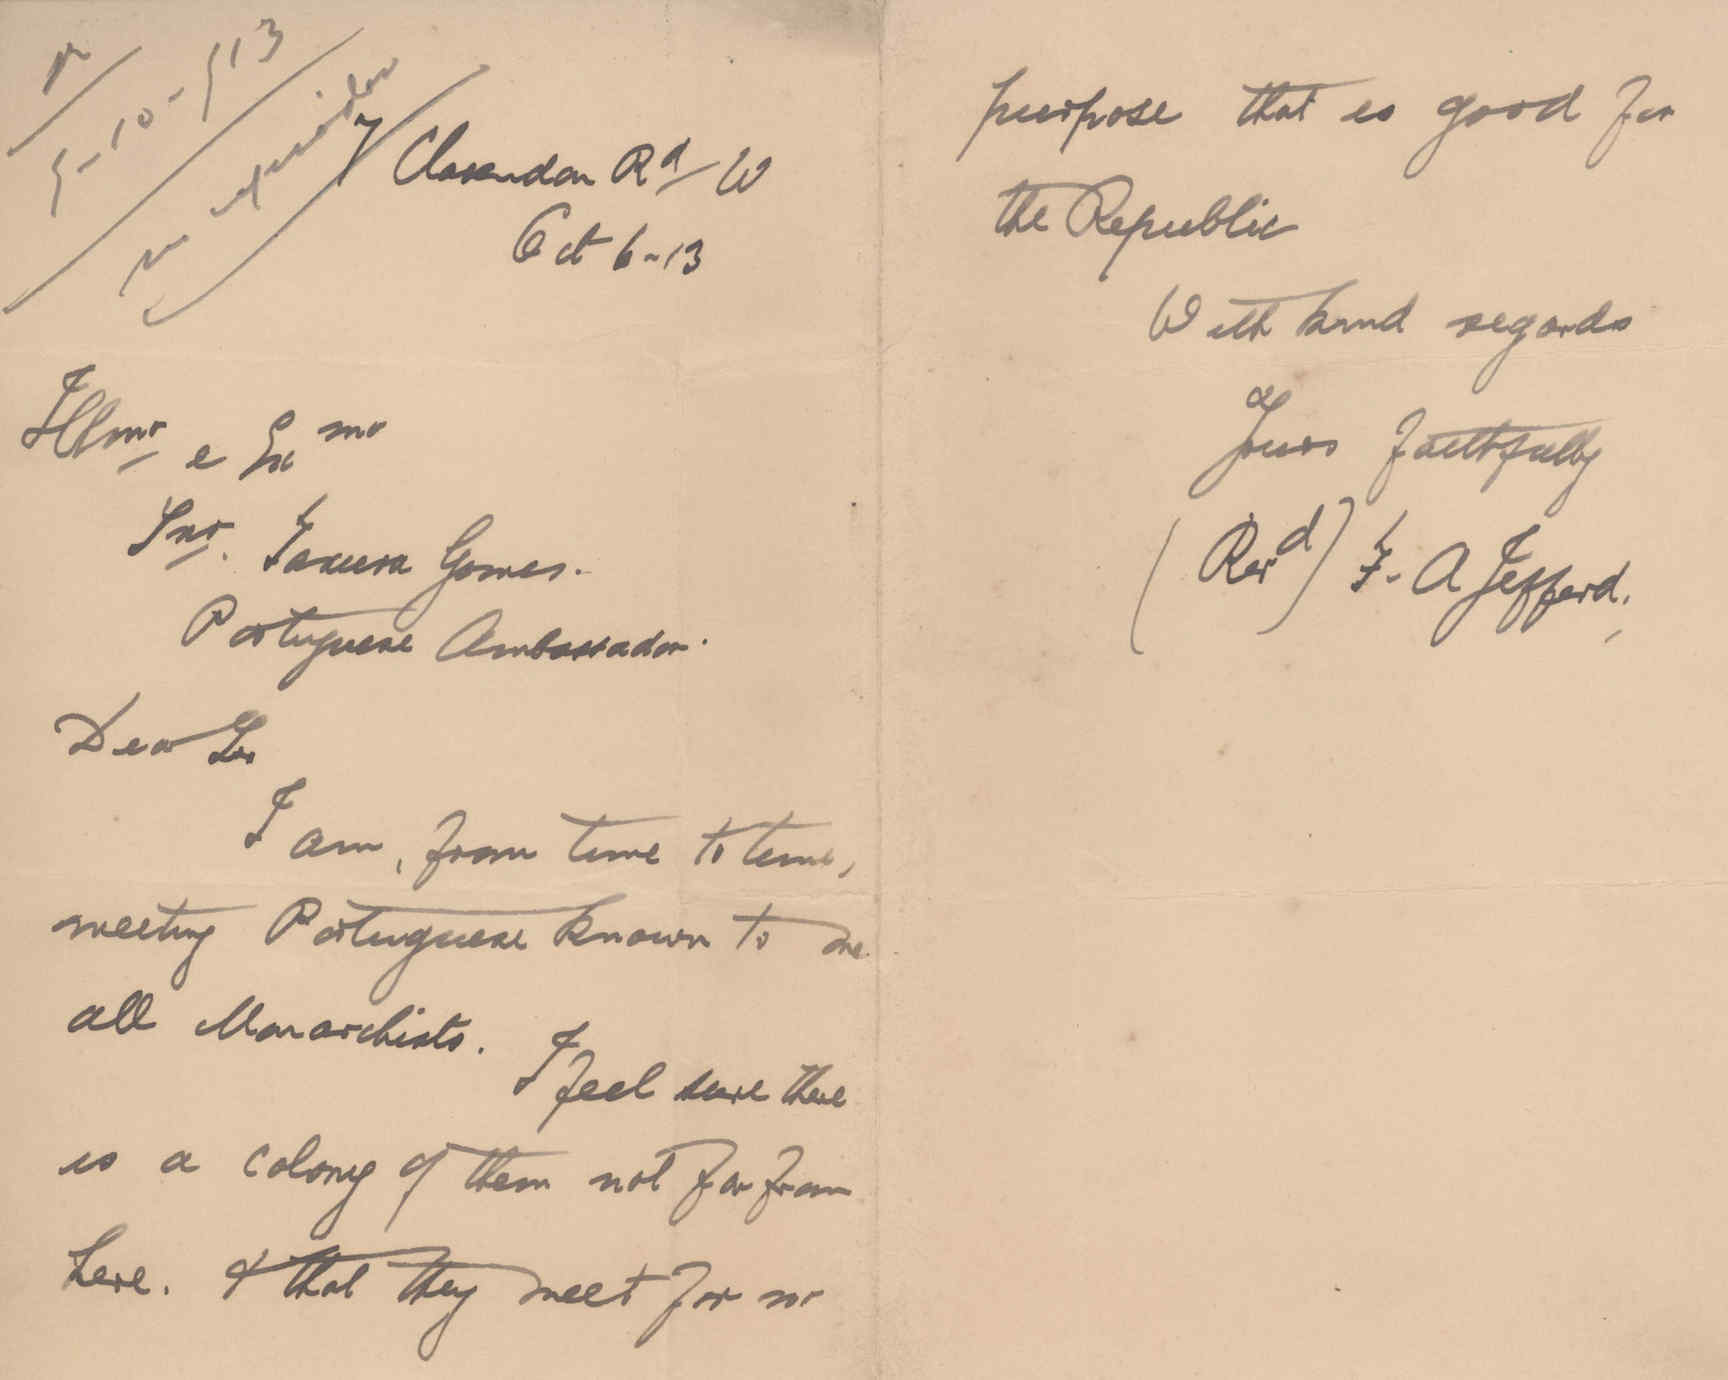 5-10-913
7 Clarendon Rd W
Oct 6-13
Illmo e Exmo
Snr. Teixeira Gomes.
Portuguese Ambassador.
Dear Sir
I am, from time to time,
meeting Portuguese known to me
all Monarchists.
I feel sure there
is a colony of them not far from
here. & that they meet for no
purpose that is good for
the Republic
With kind regards
Yours faithfully
(Revd) F. A Jefferd.